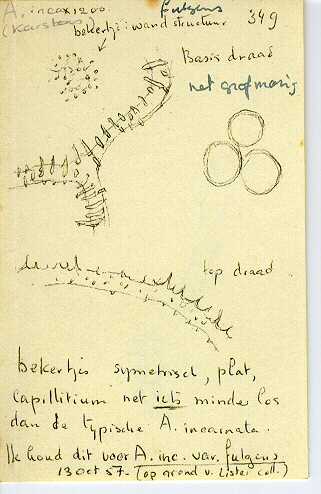 A. inc. x1200 fulgens 349
(Karsten
bekertje: wandstructuur
Basis draad
net grofmazig
top draad
bekertjes symetrisch, plat,
capillitium net iets minder los
dan de typische A. incarnata.
Ik houd dit voor A. inc. var. fulgens
13 Oct 57. (op grond v. Lister coll.)